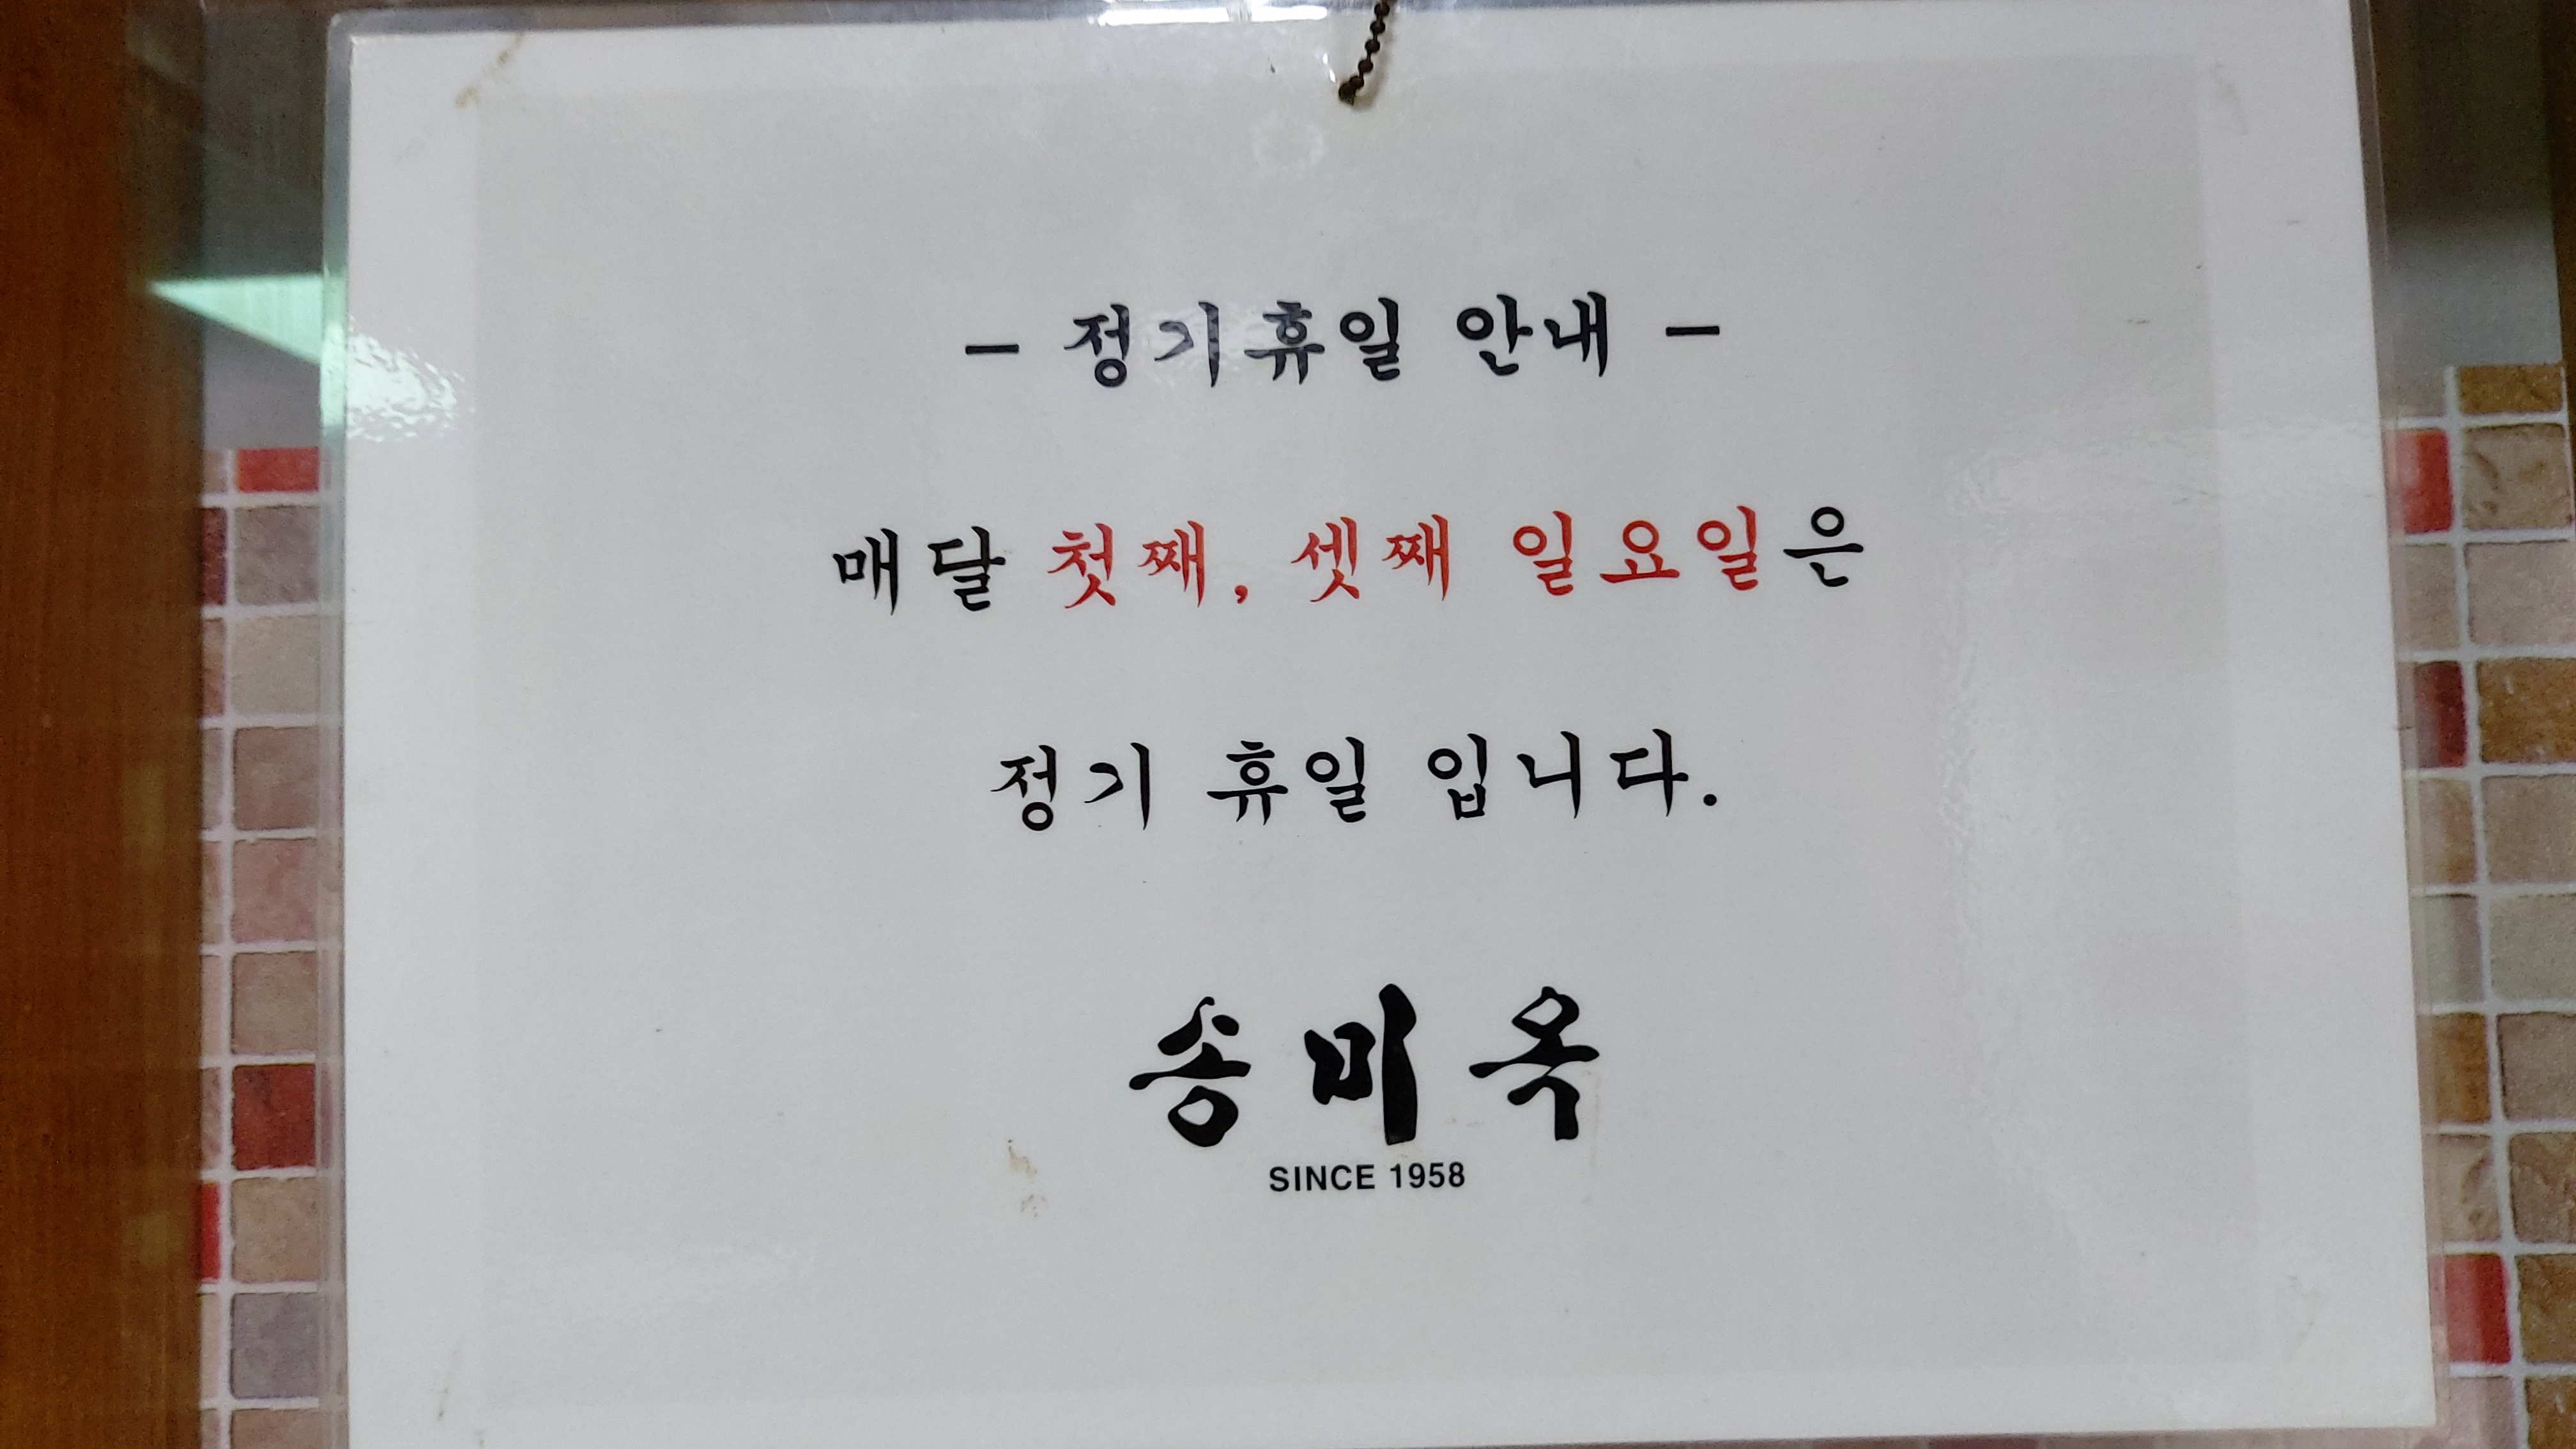 - 정기휴일 안내 -
매달 첫째, 셋째 일요일은
정기 휴일 입니다.
송미옥
SINCE 1958